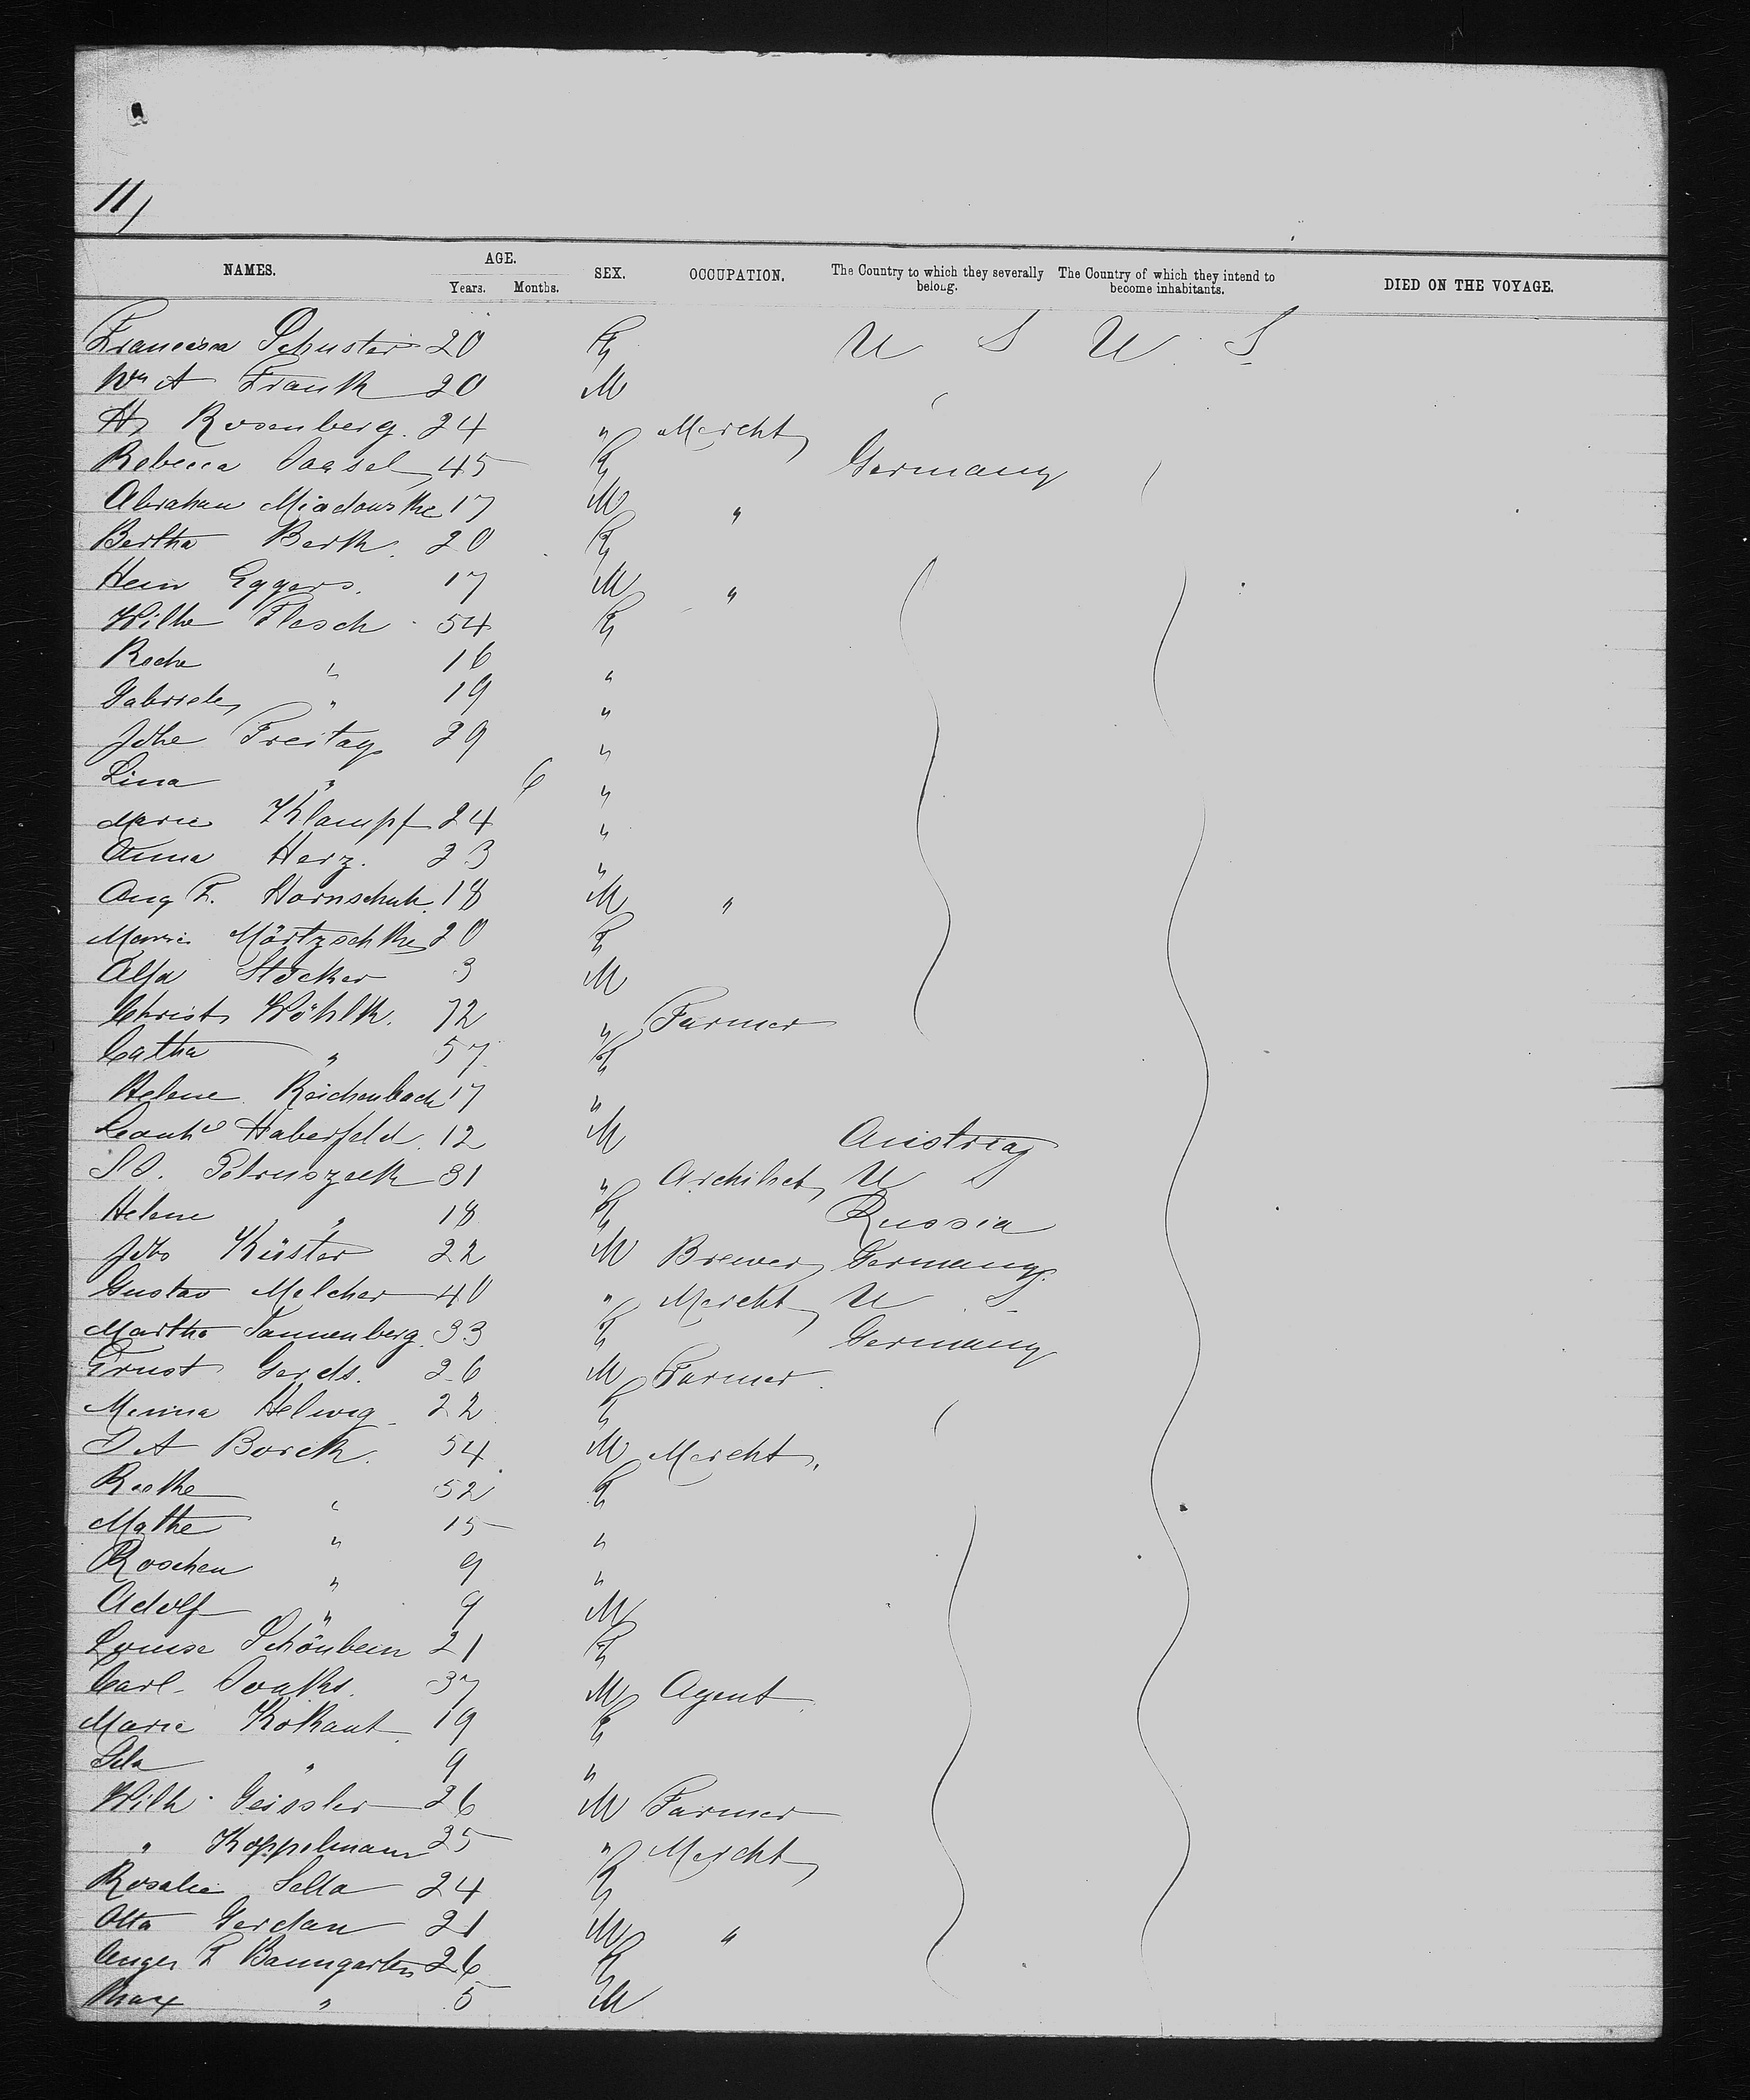 11/
NAMES. AGE. SEX. OCCUPATION. The Country to which they severally belong. The Country of which they intend to become inhabitants. DIED ON THE VOYAGE.
Years. Months.
Francisca Schuster 20 F U S U S
Wm A Frank 20 M
Hy Rosenberg. 24 " Mercht
Rebecca 45 F Germany
Abraham 17 M "
Bertha Berk. 20 F
Hein Eggers. 17 M "
Wilhe Flesch 54 F
16 "
Gabriele " 19 "
Johe Freitag 29 "
Lina " 6 "
Marie Klampf 24 "
Anna Herz. 23 "
Aug F. Hornschuh. 18 M "
Marie Mörtzschke 20 F
Stocker 3 M
Christ Wöhlk. 72 " Farmer
Catha " 57 F
Helene Reichenbach 17 "
Haberfeld. 12 M Austria
31 " Architect U S
Helene " 18 F Russia
Johs Küster 22 M Brewer Germany.
Gustav Melcher 40 " Mercht U S
Martha Tannenberg. 33 F Germany
Ernst Gerds. 26 M Farmer.
Minna Helwig 22 F
D A Borck. 54 M Mercht.
" 52 F
Mathe " 15 "
Roschen " 9 "
Adolf " 9 M
Louise Schönbein 21 F
Carl 37 M Agent.
Marie Kokant. 19 F
" 9 "
Wilh. Geissler 26 M Farmer
" Koppelmann 25 " Mercht
Rosalie Sella 24 F
Otto Gerdau 21 M "
F Baumgarten 26 F
Max " 5 M